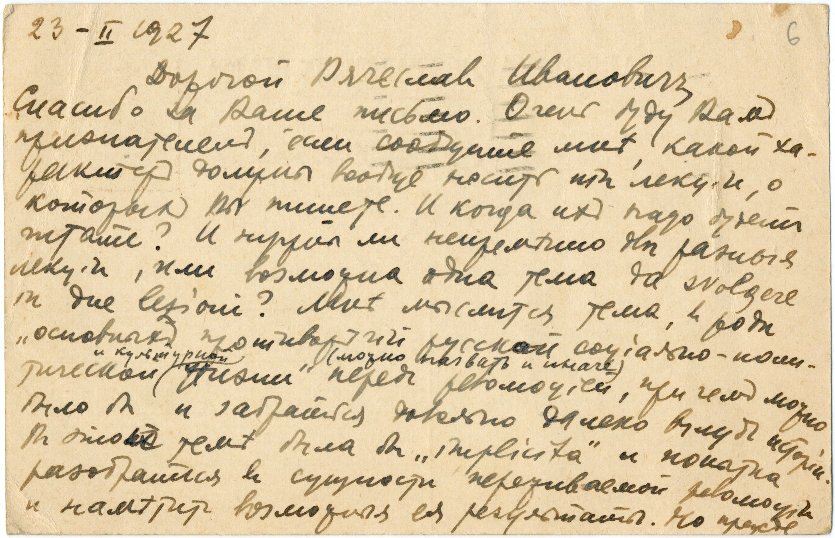 23-II 1927
6
Дорогой Вячеслав Ивановичъ
Спасибо за Ваше письмо. Очень буду Вамъ
признателенъ, если сообщите мнѣ, какой ха-
рактеръ должны вообще носить эти лекціи, о
которыхъ Вы пишете. И когда ихъ надо будетъ
читать? И нужны ли непремѣнно двѣ разныя
лекціи, или возможна одна тема da svolgere
in due lezioni? Мнѣ мыслится тема, въ родѣ
„основныхъ противорѣчій русской соціально-поли-
и культурной (можно назвать и иначе)
тической жизни" передъ революціей, при чемъ можно
было бы и забраться довольно далеко вглубь исторіи.
Въ этой темѣ была бы „implicita" и попытка
разобраться въ сущности переживаемой революціи
и намѣтить возможныя ея результаты. Но прежде